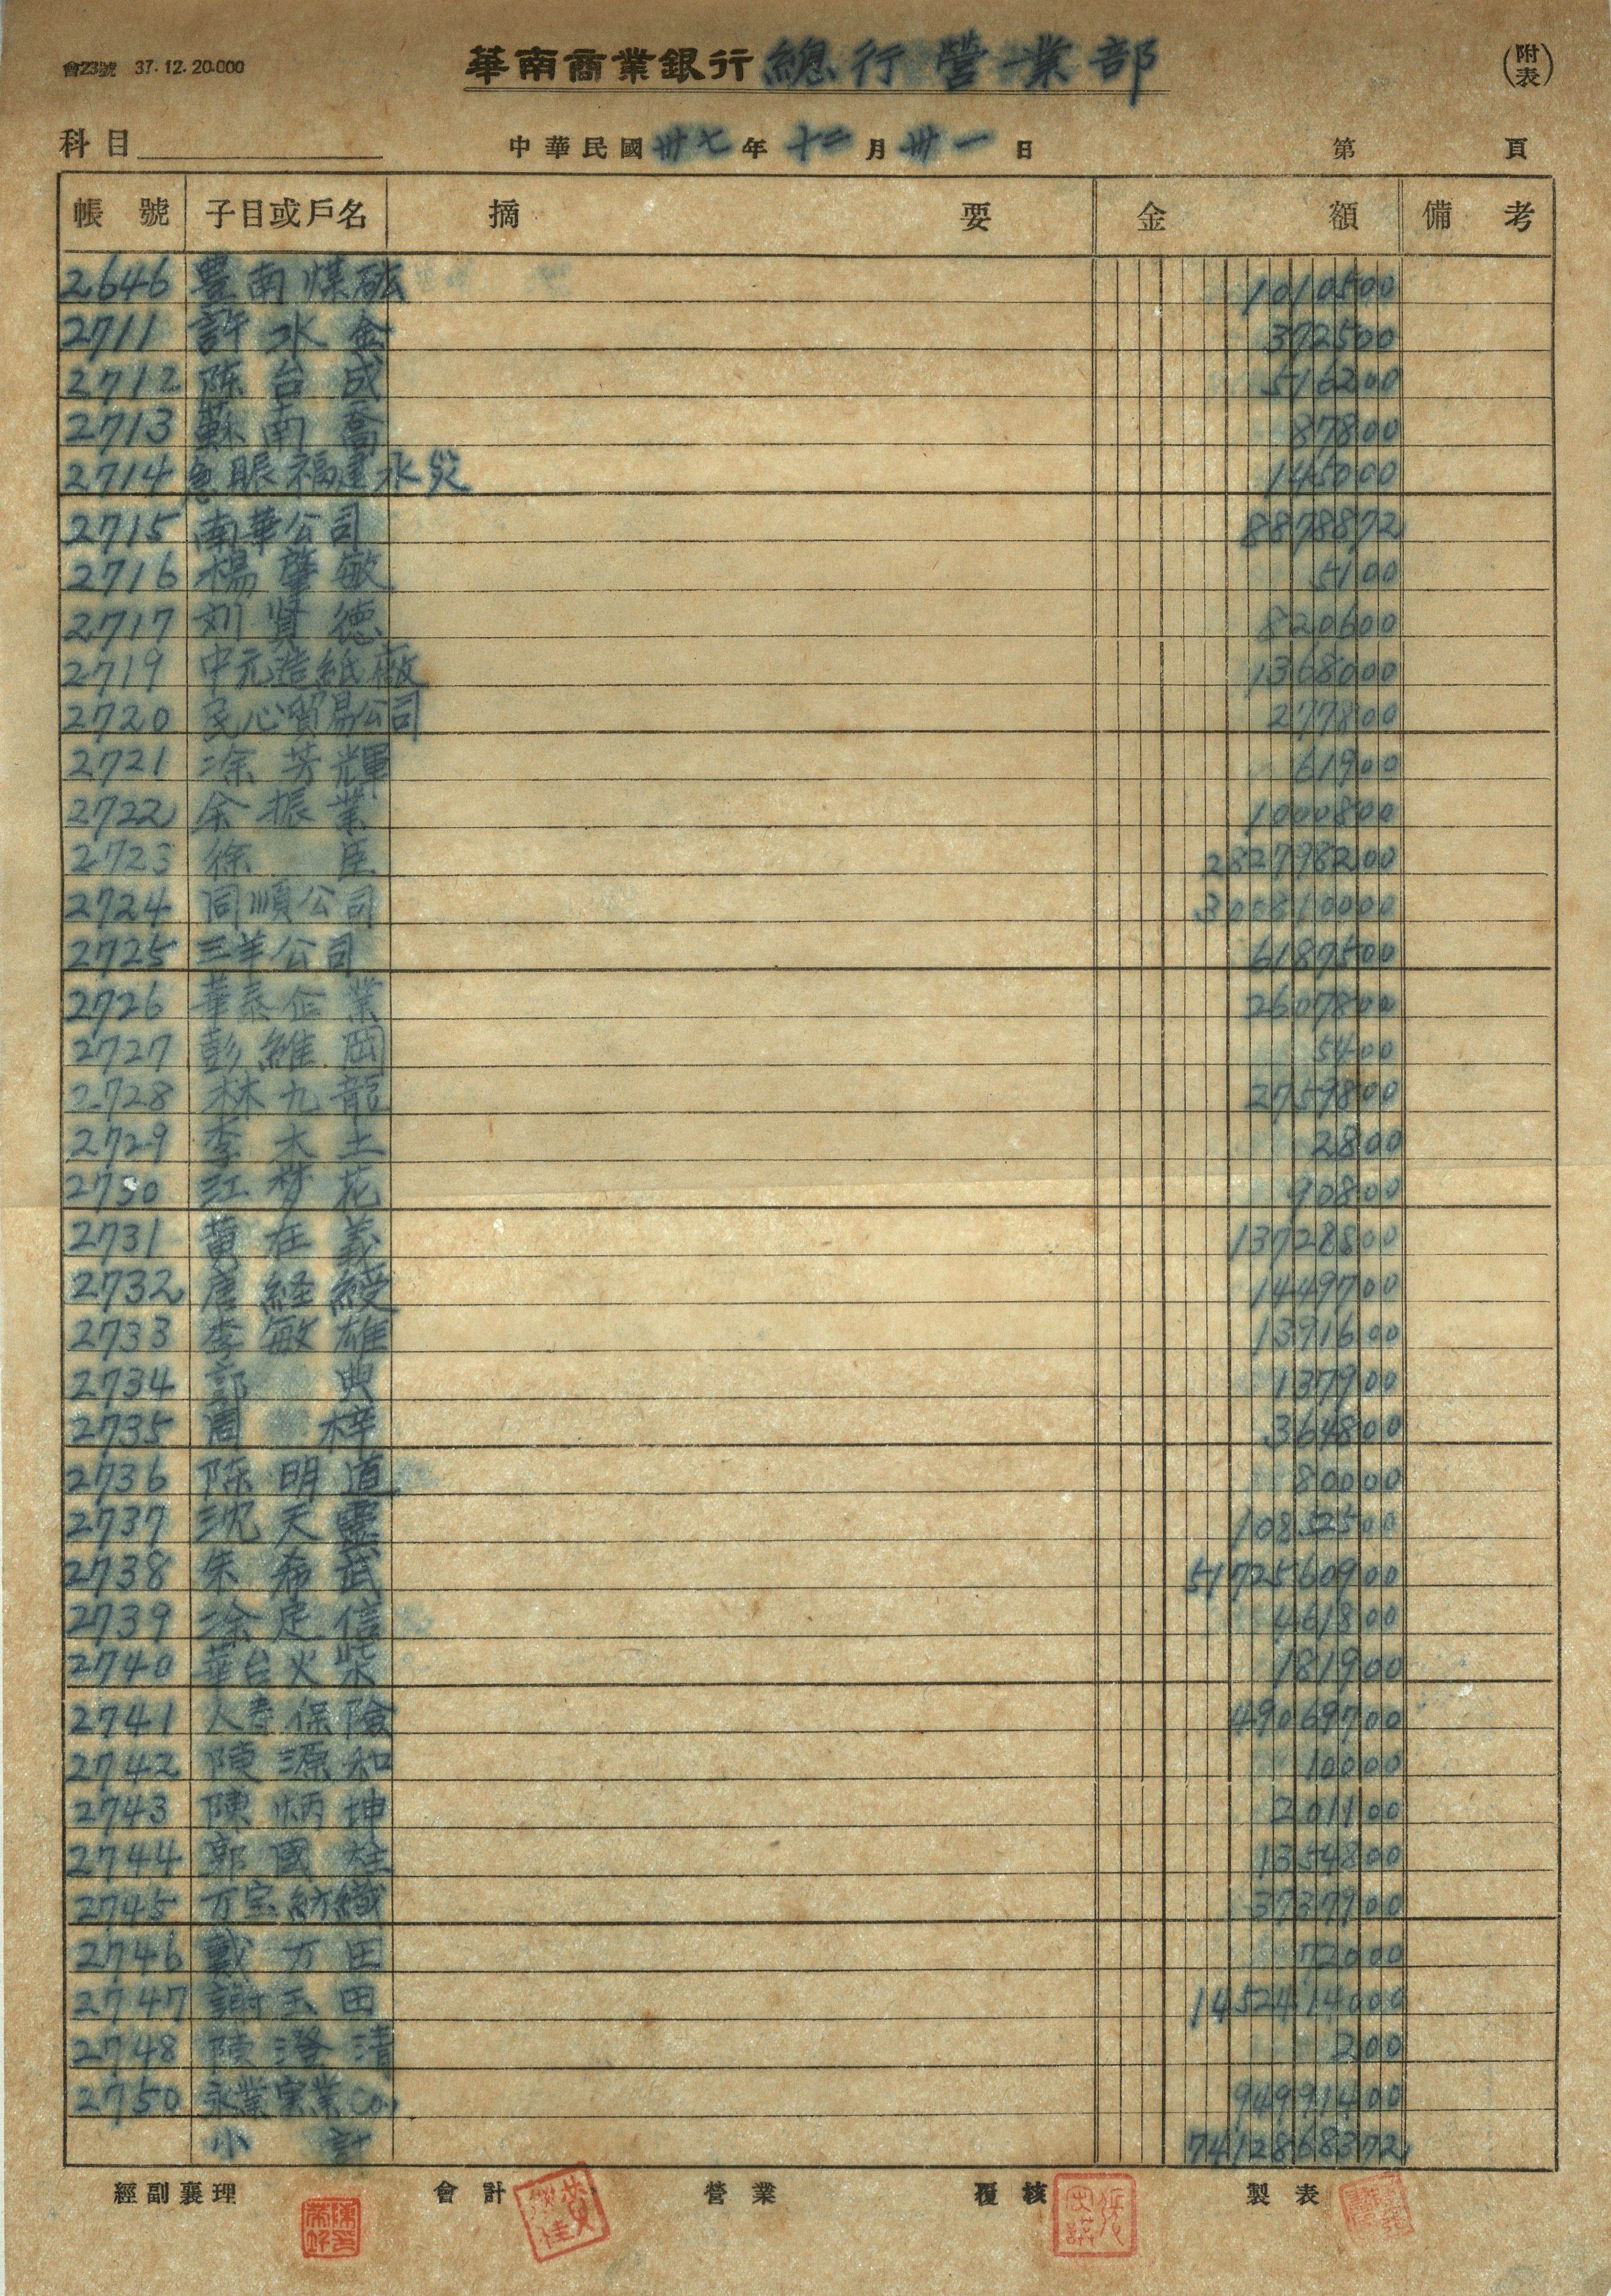 會23號 37.12.20.000
華南商業銀行總行營業部
(附表)
科目 中華民國卅七年十二月卅一日 第 頁
帳號 子目或戶名 摘要 金額 備考
2646 豊南煤砿 1010500
2711 許水金 372500
2712 陈台成 516200
2713 蘇南喬 87800
2714 急賑福建水災 145000
2715 南華公司 8878872
2716 楊肇敏 5100
2717 刘賢德 820600
2719 中元造紙廠 1368000
2720 民心貿易公司 277800
2721 涂芳輝 61900
2722 余振業 1000800
2723 徐臣 282798200
2724 同順公司 300810000
2725 三羊公司 6187500
2726 華泰企業 2607800
2727 彭維岡 5400
2728 林九龍 2759800
2729 李木土 2800
2730 江梦花 90800
2731 黄在義 13728800
2732 唐経綬 1449700
2733 李敏雄 1391600
2734 郭典 137900
2735 周梓 364800
2736 陈明道 80000
2737 沈天靈 10852500
2738 朱希武 5172560900
2739 涂定信 461800
2740 華台火柴 181900
2741 人壽保險 49069700
2742 陳源和 10000
2743 陳炳坤 201100
2744 郭國柱 1354800
2745 万宝紡織 3737900
2746 戴万田 72000
2747 謝玉田 1452414000
2748 陳澄清 200
2750 永業実業Co., 94991400
小計 7412868372
經副襄理 會計 營業 覆核 製表